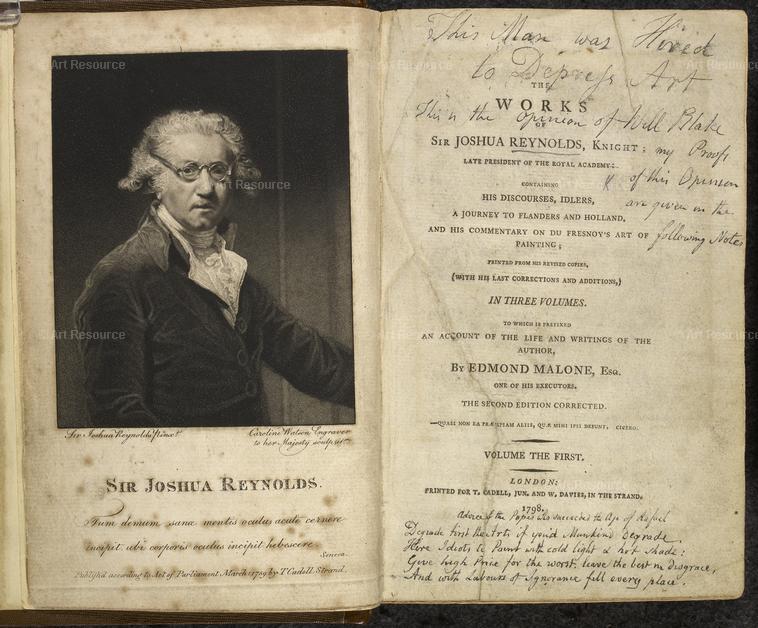 Sir Joshua Reynolds pinxt.
Caroline Watson Engraver
to her Majesty sculpsit
SIR JOSHUA REYNOLDS.
Tum demum sanæ mentis oculus acute cernere
incipit, ubi corporis oculus incipit hebescere
Seneca.
Publish'd according to Act of Parliament March 1789 by T. Cadell Strand.
This Man was Hired
to Depress Art
THE
WORKS
This is the opinion of Will Blake
OF
SIR JOSHUA REYNOLDS, KNIGHT; my Proofs
LATE PRESIDENT OF THE ROYAL ACADEMY:
of this Opinion
CONTAINING
HIS DISCOURSES, IDLERS,
are given in the
A JOURNEY TO FLANDERS AND HOLLAND,
AND HIS COMMENTARY ON DU FRESNOY'S ART OF
following Notes
PAINTING;
PRINTED FROM HIS REVISED COPIES,
(WITH HIS LAST CORRECTIONS AND ADDITIONS,)
IN THREE VOLUMES.
TO WHICH IS PREFIXED
AN ACCOUNT OF THE LIFE AND WRITINGS OF THE
AUTHOR,
BY EDMOND MALONE, ESQ.
ONE OF HIS EXECUTORS.
THE SECOND EDITION CORRECTED.
—QUASI NON EA PRÆCIPIAM ALIIS, QUÆ MIHI IPSI DESUNT. CICERO.
VOLUME THE FIRST.
LONDON:
PRINTED FOR T. CADELL, JUN. AND W. DAVIES, IN THE STRAND.
1798.
Advice of the Popes who succeeded the Age of Rafael
Degrade first the Arts if you'd Mankind degrade,
Hire Idiots to Paint with cold light & hot shade:
Give high Price for the worst, leave the best in disgrace,
And with Labours of Ignorance fill every place.
Art Resource
Art Resource
Art Resource
Art Resource
Art Resource
Art Resource
Art Resource